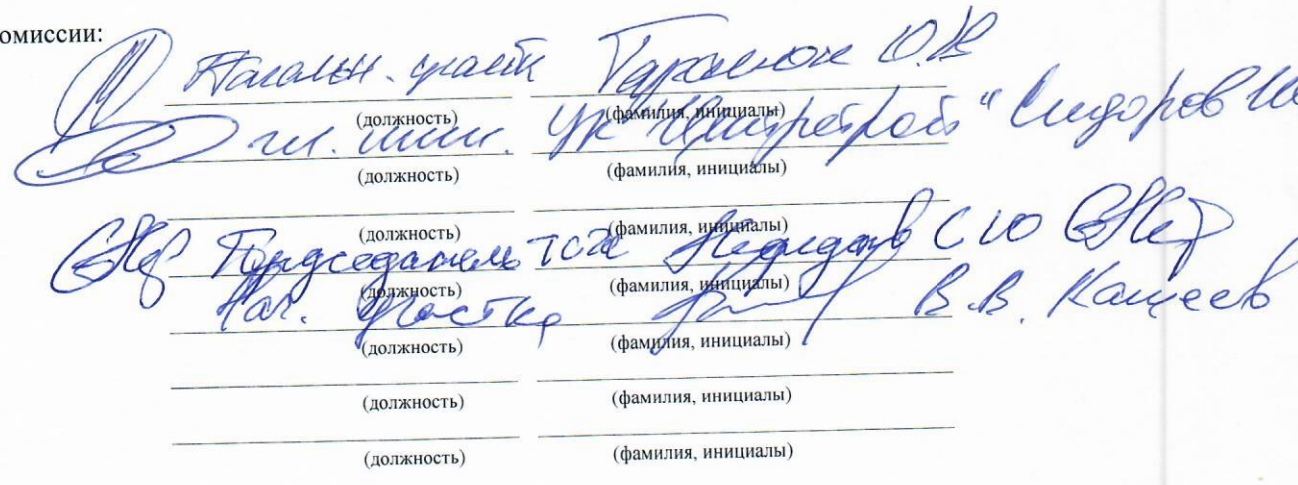 омиссии:
Начальн. участк Таранюк О.В
(должность) (фамилия, инициалы)
гл. инж. УК "Центрстрой" Сидоров
(должность) (фамилия, инициалы)
(должность) (фамилия, инициалы)
Председатель ТСЖ С Ю
(должность) (фамилия, инициалы)
Нач. участка В.В. Кащеев
(должность) (фамилия, инициалы)
(должность) (фамилия, инициалы)
(должность) (фамилия, инициалы)